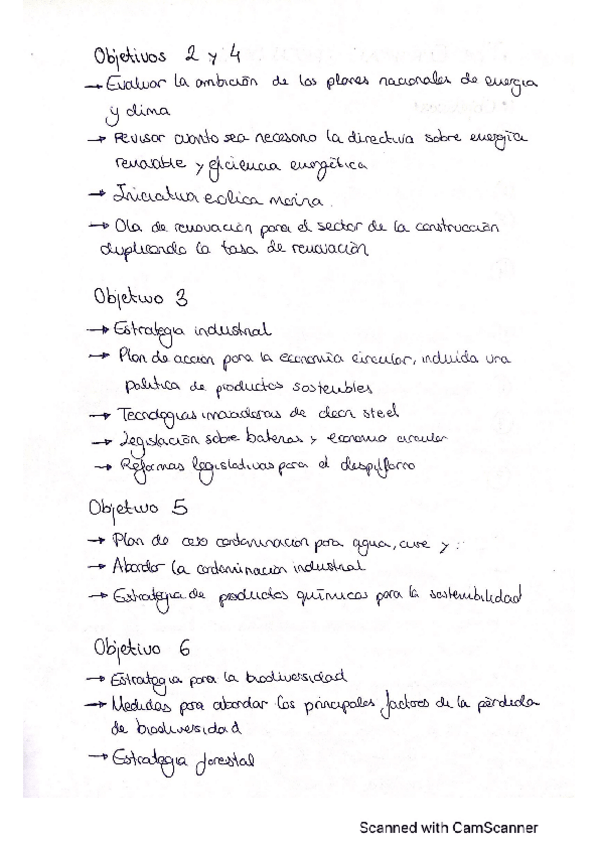 Objetivos 2 y 4
→ Evaluar la ambición de los planes nacionales de energia
y clima
→ revisar cuanto sea necesario la directiva sobre energía
renovable y eficiencia energética
→ Iniciativa eolica marina.
→ Ola de renovación para el sector de la construcción
duplicando la tasa de renovación
Objetivo 3
→ Estrategia industrial
→ Plan de accion para la economía circular, incluida una
politica de productos sostenibles
→ Tecnologias innovadoras de clean steel
→ Legislación sobre baterias y economia circular
→ Reformas legislativas para el despilfarro
Objetivo 5
→ Plan de cero contaminacion para agua, aire y :
→ Abordar la contaminación industrial
→ Estrategia de productos químicos para la sostenibilidad
Objetivo 6
→ Estrategia para la biodiversidad
→ Medidas para abordar los principales factores de la pèrdida
de biodiversidad
→ Estrategia forestal
Scanned with CamScanner